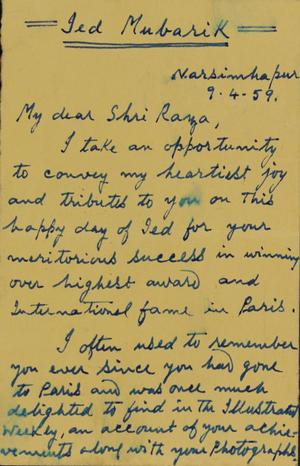 Ied Mubarik
Narsimhapur
9.4.59.
My dear Shri Raza,
I take an opportunity
to convey my heartiest joy
and tributes to you on this
happy day of Ied for your
meritorious success in winning
over highest award and
International fame in Paris.
I often used to remember
you ever since you had gone
to Paris and was once much
delighted to find in the Illustrated
Weekly, an account of your achie-
vements along with your Photographs.